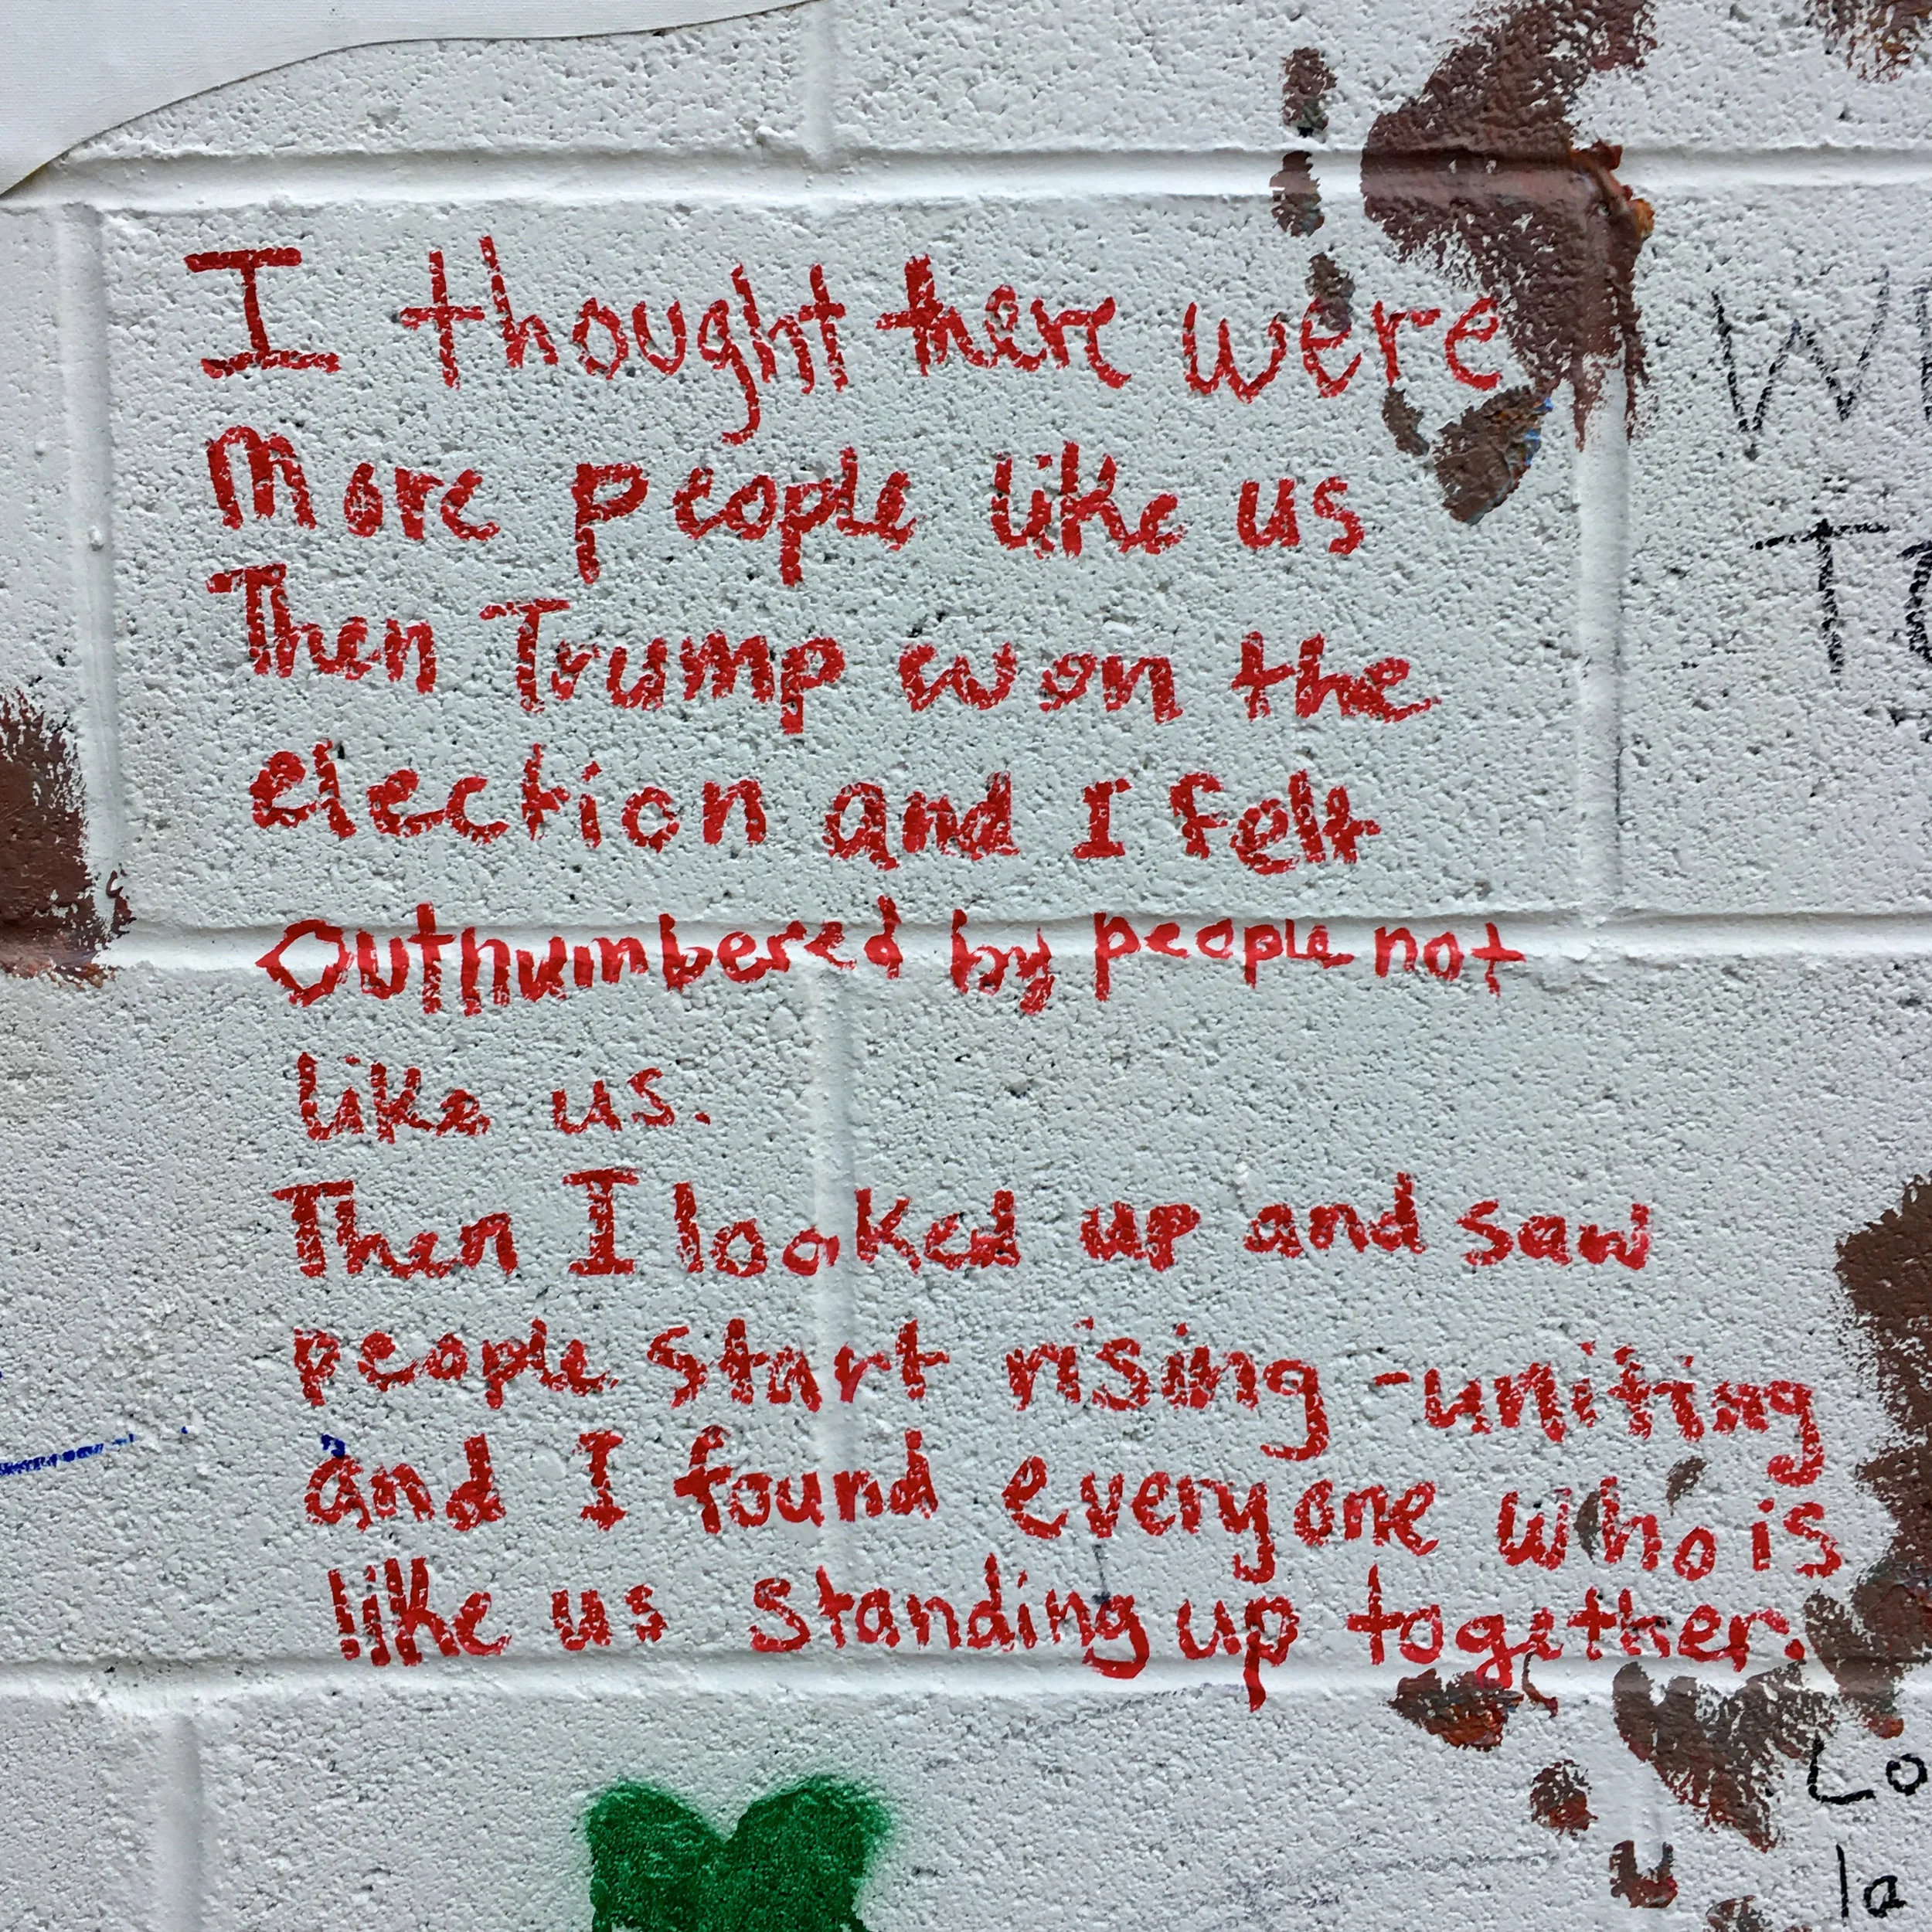 I thought there were
More people like us
Then Trump won the
election and I felt
Outnumbered by people not
like us.
Then I looked up and saw
people start rising - uniting
and I found everyone who is
like us standing up together.
Lo
la